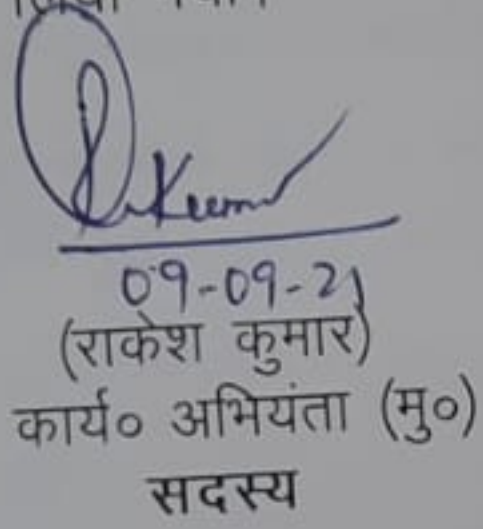 R. Kumar
09-09-21
(राकेश कुमार)
कार्य० अभियंता (मु०)
सदस्य